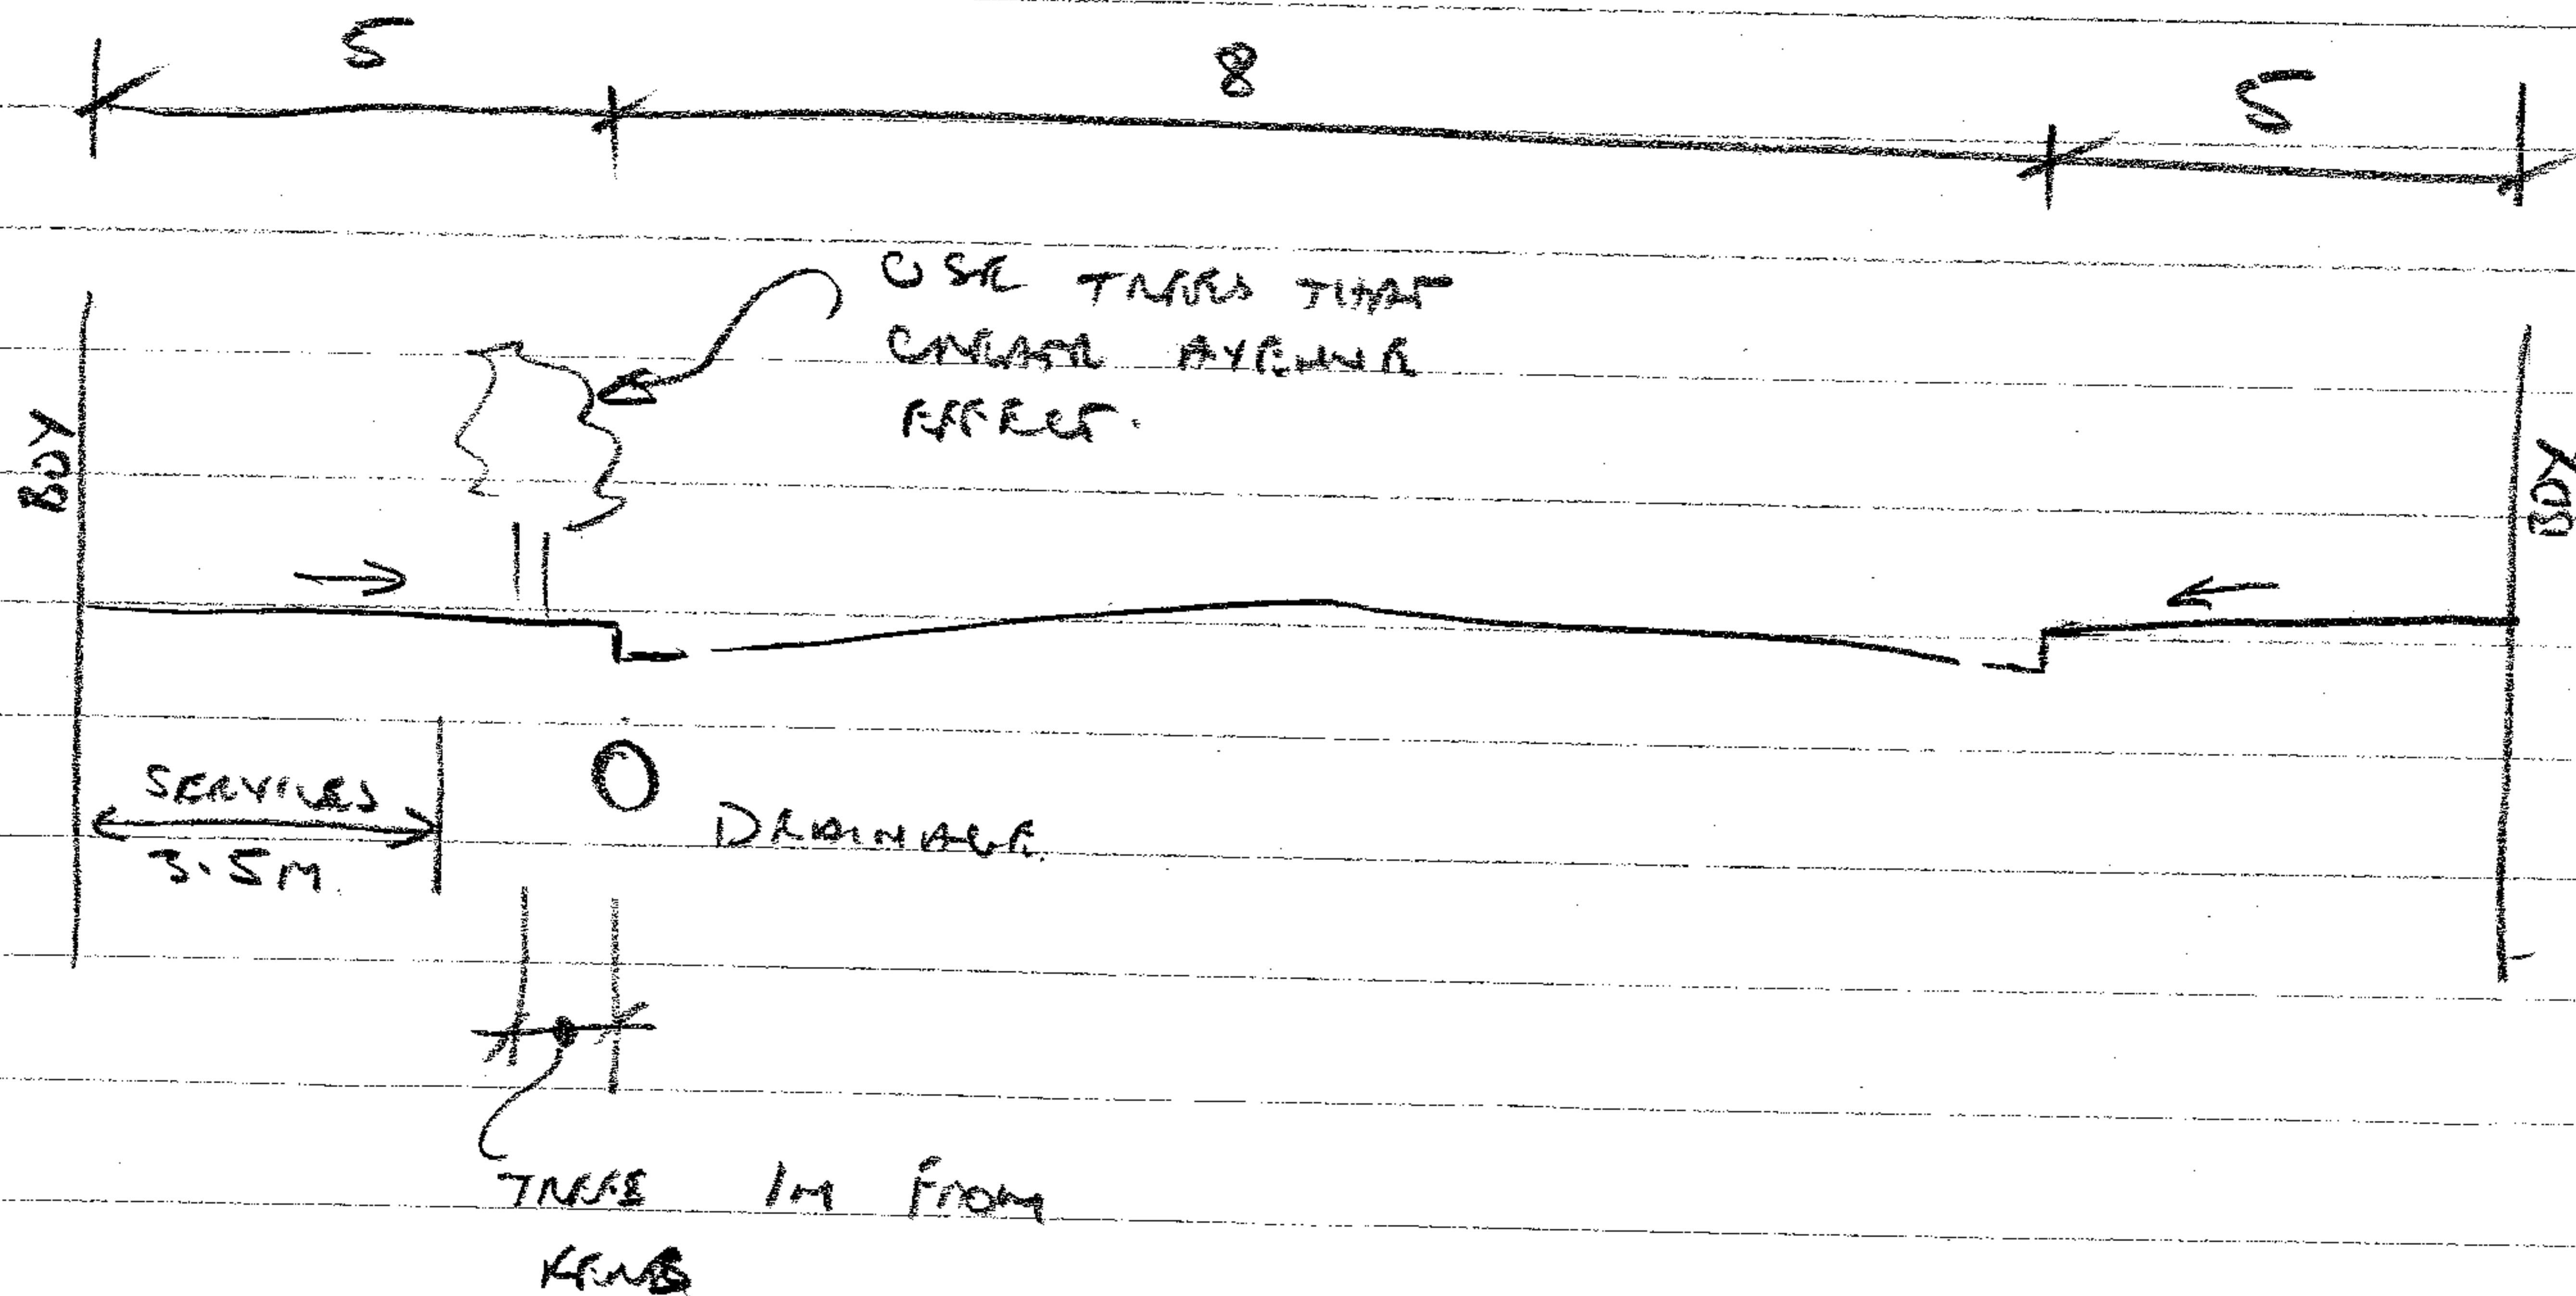 5 8 5
USE TREES THAT
CREATE AVENUE
EFFECT.
BDY
BDY
SERVICES
3.5M
DRAINAGE.
TREES 1M FROM
KERB